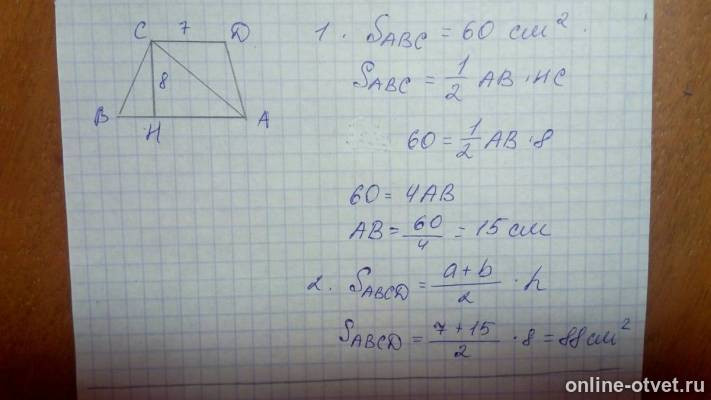 C 7 D
8
B H A
1. S_ABC = 60 см².
S_ABC = 1/2 AB · HC
60 = 1/2 AB · 8
60 = 4AB
AB = 60/4 = 15 см
2. S_ABCD = a+b/2 · h
S_ABCD = 7+15/2 · 8 = 88 см²
online-otvet.ru